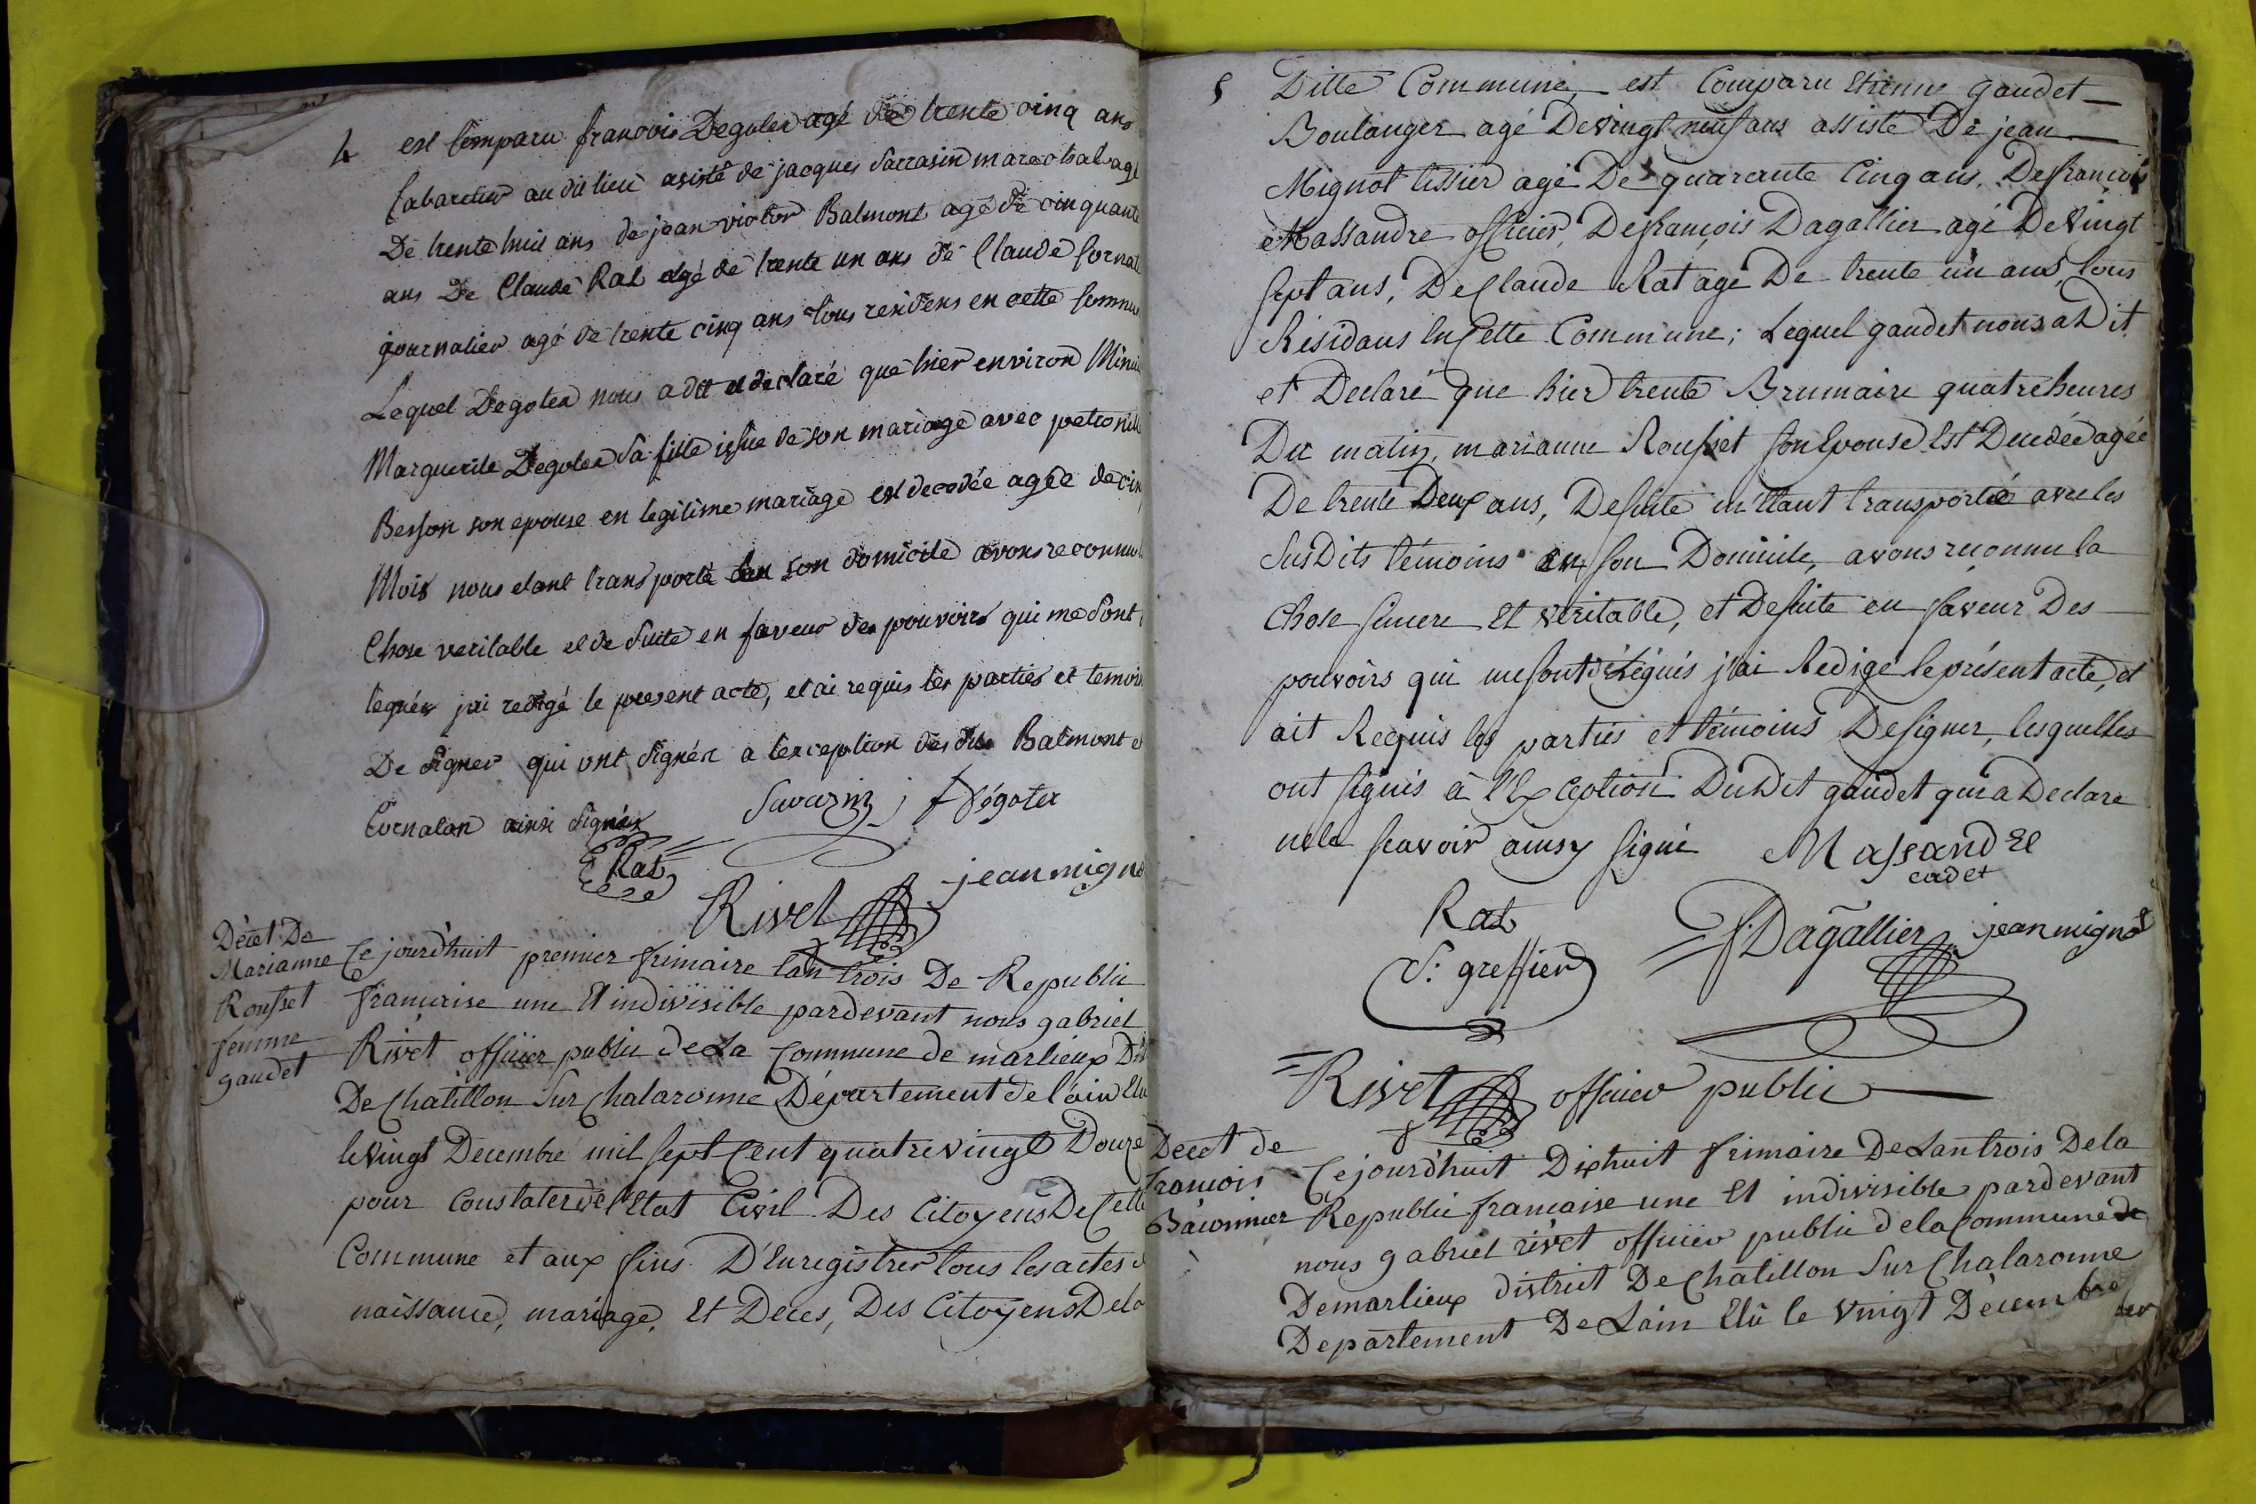 4
est Comparu francois Degoler agé de trente cinq ans
Cabaretier au dit lieu asisté de jacques Sarrasin marechal agé
De trente huit ans de jean victor Balmont agé de cinquante
ans De Claude Rat agé de trente un ans de Claude Cornat
journalier agé de trente cinq ans tous residens en cette Commu
Lequel Degoler nous a dit et declaré que hier environ Minui
Marguerite Degoler Sa fille issue de son mariage avec petronill
Besson son epouse en legitime mariage est decedée agée de cin
Mois nous etant transporté son domicile avons reconnu
Chose veritable et de Suite en faveur des pouvoirs qui me Sont
legués jai redigé le present acte, et ai requis les parties et temoin
De Signer qui ont Signés a lexception des dits Balmont e
Cornaton ainsi Signés
Savazin j f Dégoter
Rat
Rivet
jean migno
Décet De
Marianne
Rousset
femme
gaudet
Ce jourd'huit premier frimaire lan trois De Republi
francaise une Et indivisible pardevant nous gabriel
Rivet officier public de La Commune de marlieux Di
De Chatillon Sur Chalaronne Département de l'ain Elu
le Vingt Decembre mil Sept Cent quatre vingt Douze
pour Constater de l'Etat Civil Des Citoyens De Cette
Commune et aux fins D'Enregistrer tous les actes d
naissance, mariage, Et Deces, Des Citoyens De la
5
Ditte Commune, est Comparu Etienne gaudet
Boulanger agé De vingt neuf ans assisté De jean
Mignot tissier agé De quarante Cinq ans, De francois
Massandre officier, De françois Dagallier agé De Vingt
Sept ans, De Claude Rat agé De trente un ans, tous
Résidans En Cette Commune; Lequel gaudet nous a Dit
et Declaré que hier trente Brumaire quatre heures
Du matin, marianne Rousset Son Epouse Est Decedée agée
De trente Deux ans, De Suite m'Etant transportée avec les
Sus Dits témoins en Son Domicile, avons reconnu la
Chose Sincere Et veritable, et De Suite en faveur Des
pouvoirs qui me Sont délégués j'ai Redigé le présent acte, et
ait Requis les parties et témoins De Signer, lesquelles
ont Signés à l'Exception Du Dit gaudet qui a Declare
ne le Scavoir ainsy Signé
Massandre
cadet
Rat
S: greffier
f: Dagallier
jean mignot
Rivet officier public
Decet de
francois
Baconnier
Ce jourd'huit Dixhuit frimaire De Lan trois De la
Republic francaise une Et indivisible pardevant
nous gabriel rivet officier public de la Commune de
De marlieux district De Chatillon Sur Chalaronne
Departement De Lain Elû le Vingt Décembre